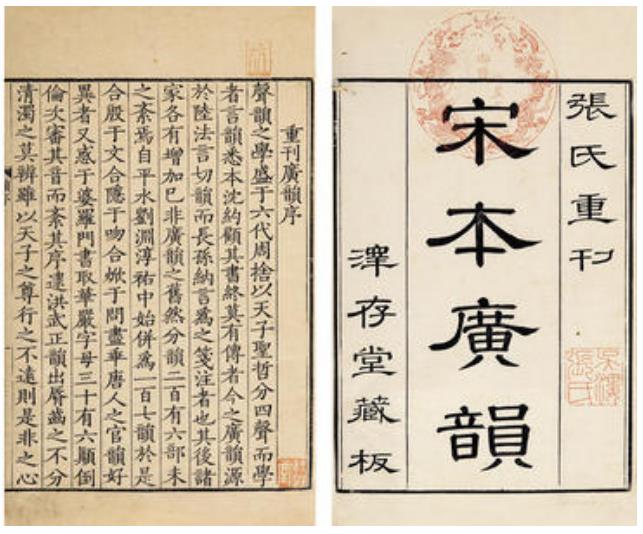 張氏重刊
宋本廣韻
澤存堂藏板
重刊廣韻序
聲韻之學盛于六代周捨以天子聖哲分四聲而學
者言韻悉本沈約顧其書終莫有傳者今之廣韻源
於陸法言切韻而長孫納言為之箋注者也其後諸
家各有增加巳非廣韻之舊然分韻二百有六部未
之紊焉自平水劉淵淳祐中始併為一百七韻於是
合殷于文合隱于吻合焮于問盡乖唐人之官韻好
異者又惑于婆羅門書取華嚴字母三十有六顛倒
倫次審其音而紊其序逮洪武正韻出脣齒之不分
清濁之莫辨雖以天子之尊行之不遠則是非之心